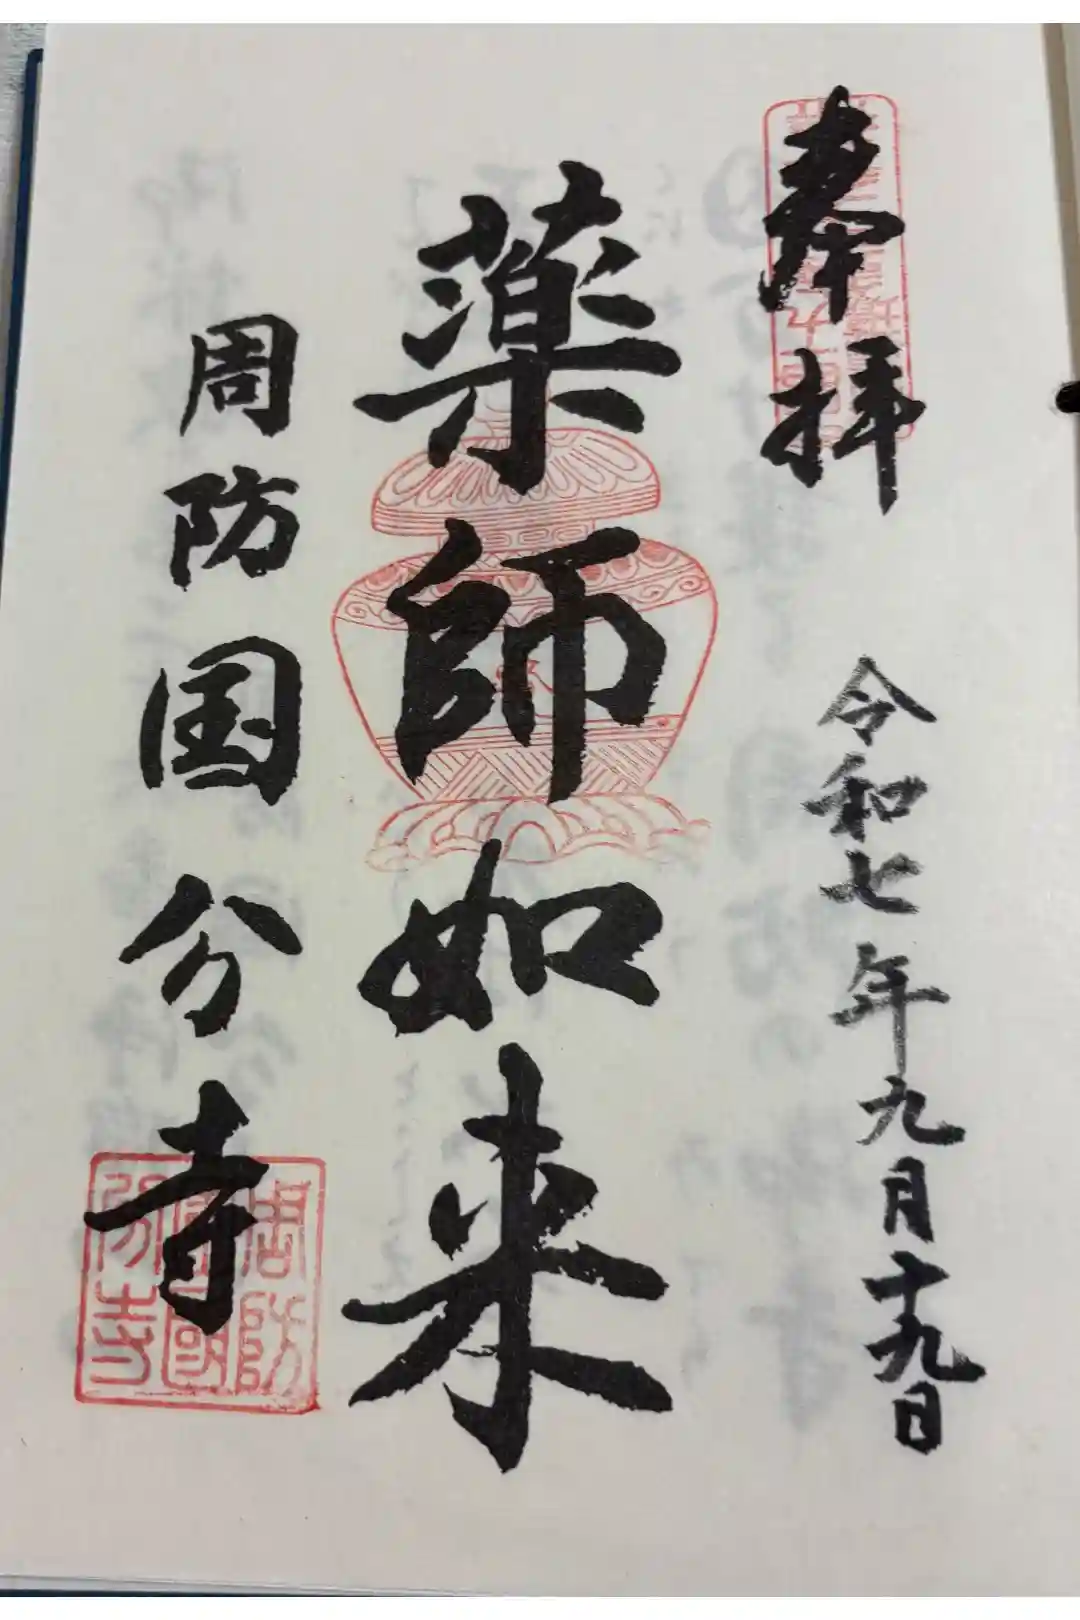 奉拝
令和七年九月十九日
薬師如来
周防国分寺
周防國分寺